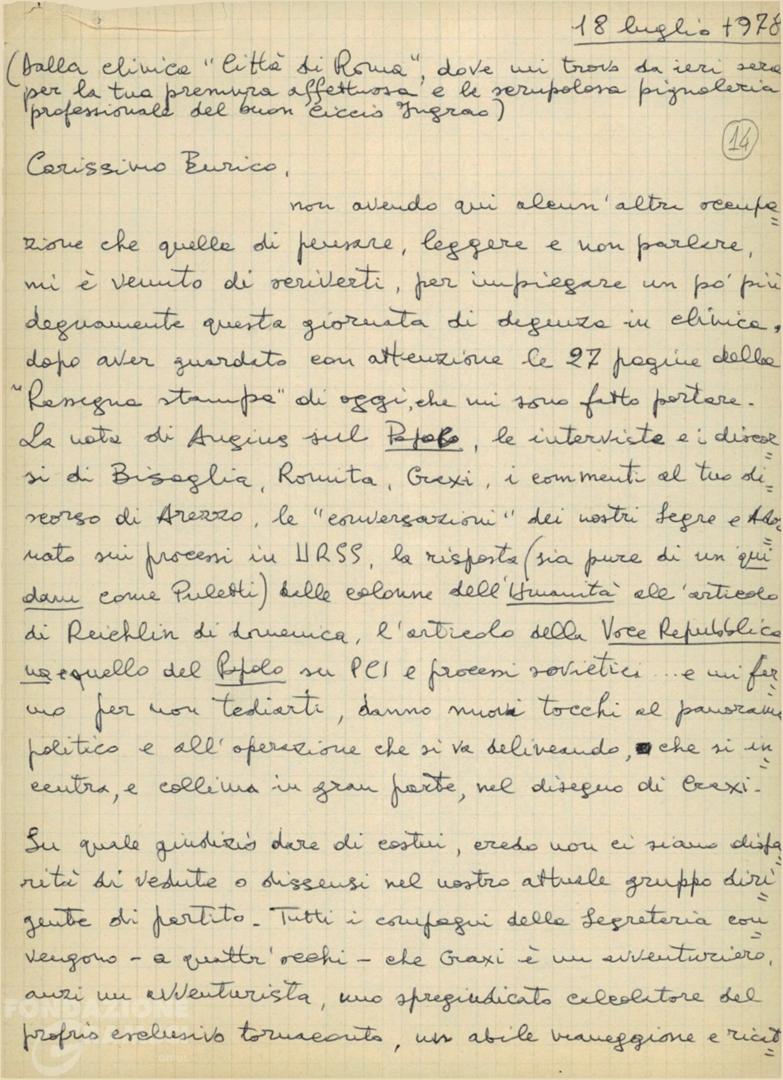 18 luglio 1978
(Dalla clinica "Città di Roma", dove mi trovo da ieri sera
per la tua premura affettuosa e la scrupolosa pignoleria
professionale del buon Ciccio Ingrao)
14
Carissimo Enrico,
non avendo qui alcun'altra occupa=
zione che quella di pensare, leggere e non parlare,
mi è venuto di scriverti, per impiegare un po' più
degnamente questa giornata di degenza in clinica,
dopo aver guardato con attenzione le 27 pagine della
"Rassegna stampa" di oggi, che mi sono fatto portare.
La nota di Augius sul Popolo, le interviste e i discor=
si di Bisaglia, Romita, Craxi, i commenti al tuo di=
scorso di Arezzo, le "conversazioni" dei nostri Segre e Ado=
nato sui processi in URSS, la risposta (sia pure di un qui
dam come Puletti) dalle colonne dell'Umanità all'articolo
di Reichlin di domenica, l'articolo della Voce Repubblica
na e quello del Popolo su PCI e processi sovietici ... e mi fer=
mo per non tediarti, danno nuovi tocchi al panorama
politico e all'operazione che si va delineando, che si in=
centra, e collima in gran parte, nel disegno di Craxi.
Su quale giudizio dare di costui, credo non ci siano dispa=
rità di vedute o dissensi nel nostro attuale gruppo diri=
gente di partito. Tutti i compagni della Segreteria con=
vengono - a quattr'occhi - che Craxi è un avventuriero,
anzi un avventurista, uno spregiudicato calcolatore del
proprio esclusivo tornaconto, un abile maneggione e ricat=
FONDAZIONE